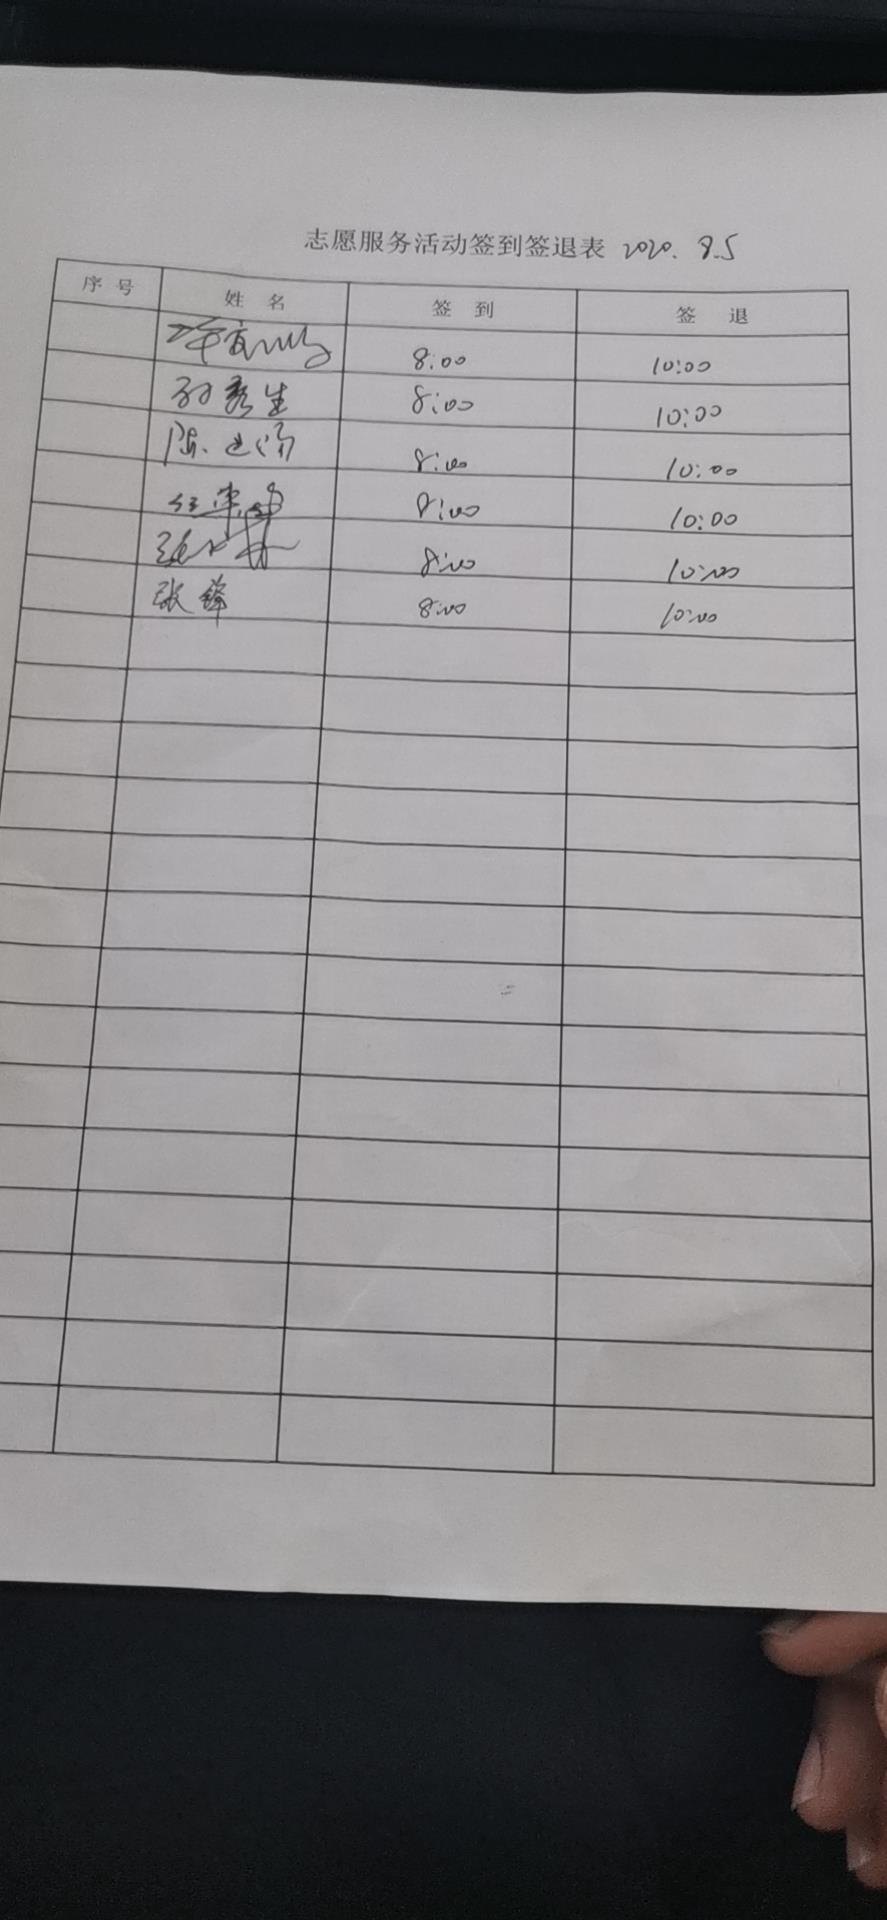 志愿服务活动签到签退表 2020. 8.5
序号 姓名 签到 签退
8:00 10:00
孙秀生 8:00 10:00
陈 8:00 10:00
8:00 10:00
8:00 10:00
张锋 8:00 10:00